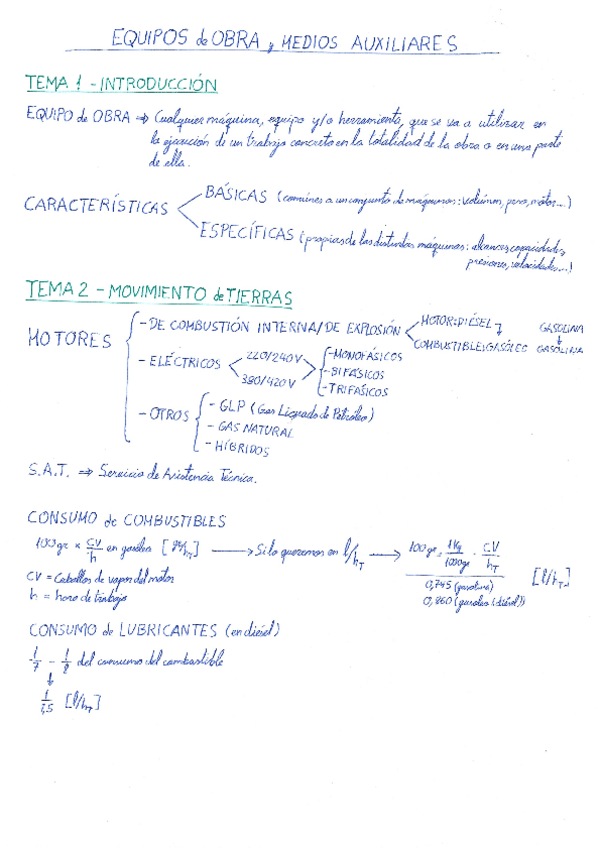 EQUIPOS de OBRA y MEDIOS AUXILIARES
TEMA 1 - INTRODUCCIÓN
EQUIPO de OBRA ⇒ Cualquier máquina, equipo y/o herramienta, que se va a utilizar en
la ejecución de un trabajo concreto en la totalidad de la obra o en una parte
de ella.
CARACTERÍSTICAS
BÁSICAS (comunes a un conjunto de máquinas: volumen, peso, motor...)
ESPECÍFICAS (propias de las distintas máquinas: alcances, capacidades,
presiones, velocidades...)
TEMA 2 - MOVIMIENTO de TIERRAS
MOTORES
- DE COMBUSTIÓN INTERNA/DE EXPLOSIÓN
MOTOR: DIÉSEL
GASOLINA
COMBUSTIBLE: GASÓLEO
GASOLINA
- ELÉCTRICOS
220/240V
380/420V
- MONOFÁSICOS
- BIFÁSICOS
- TRIFÁSICOS
- OTROS
- GLP (Gas Licuado de Petróleo)
- GAS NATURAL
- HÍBRIDOS
S.A.T. ⇒ Servicio de Asistencia Técnica.
CONSUMO de COMBUSTIBLES
100gr × CV/h en gasolina [gr/hT] → Si lo queremos en l/hT → 100gr · 1Kg/1000gr · CV/hT
CV = Caballos de vapor del motor
0,745 (gasolina)
[l/hT]
h = hora de trabajo
0,860 (gasóleo (diésel))
CONSUMO de LUBRICANTES (en diésel)
1/7 - 1/8 del consumo del combustible
↓
1/7,5 [l/hT]